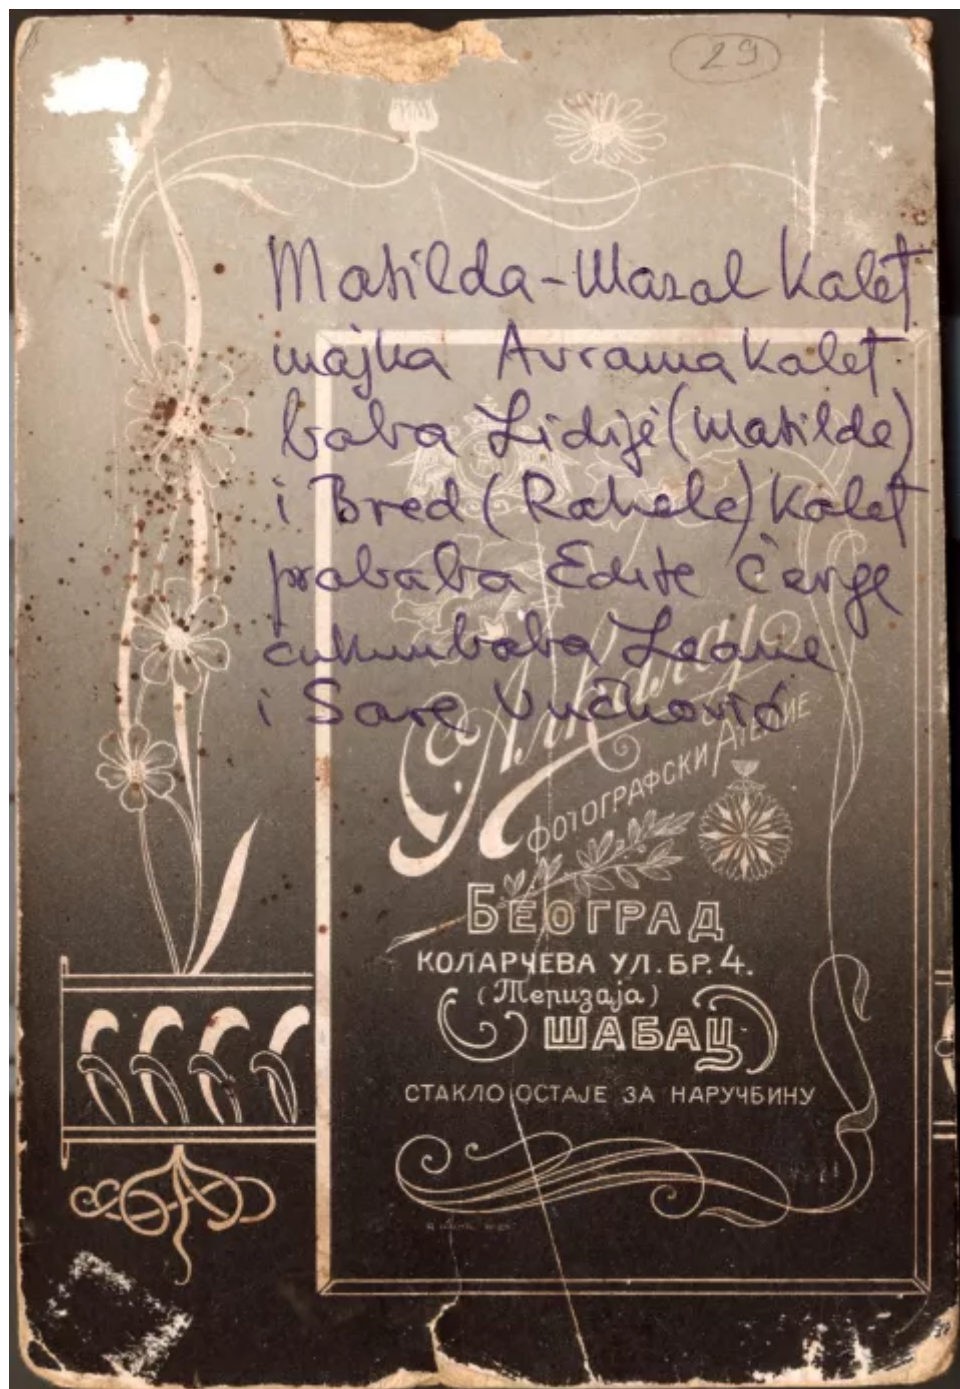 29
Matilda-Mazal Kalef
majka Avrama Kalef
baba Lidije (Matilde)
i Bred (Rahele) Kalef
prababa Edite Čerge
čukunbaba Leane
i Sare Vučković
ФОТОГРАФСКИ АТЕЛИЕ
БЕОГРАД
КОЛАРЧЕВА УЛ. БР. 4.
(Теризаја)
ШАБАЦ
СТАКЛО ОСТАЈЕ ЗА НАРУЧБИНУ